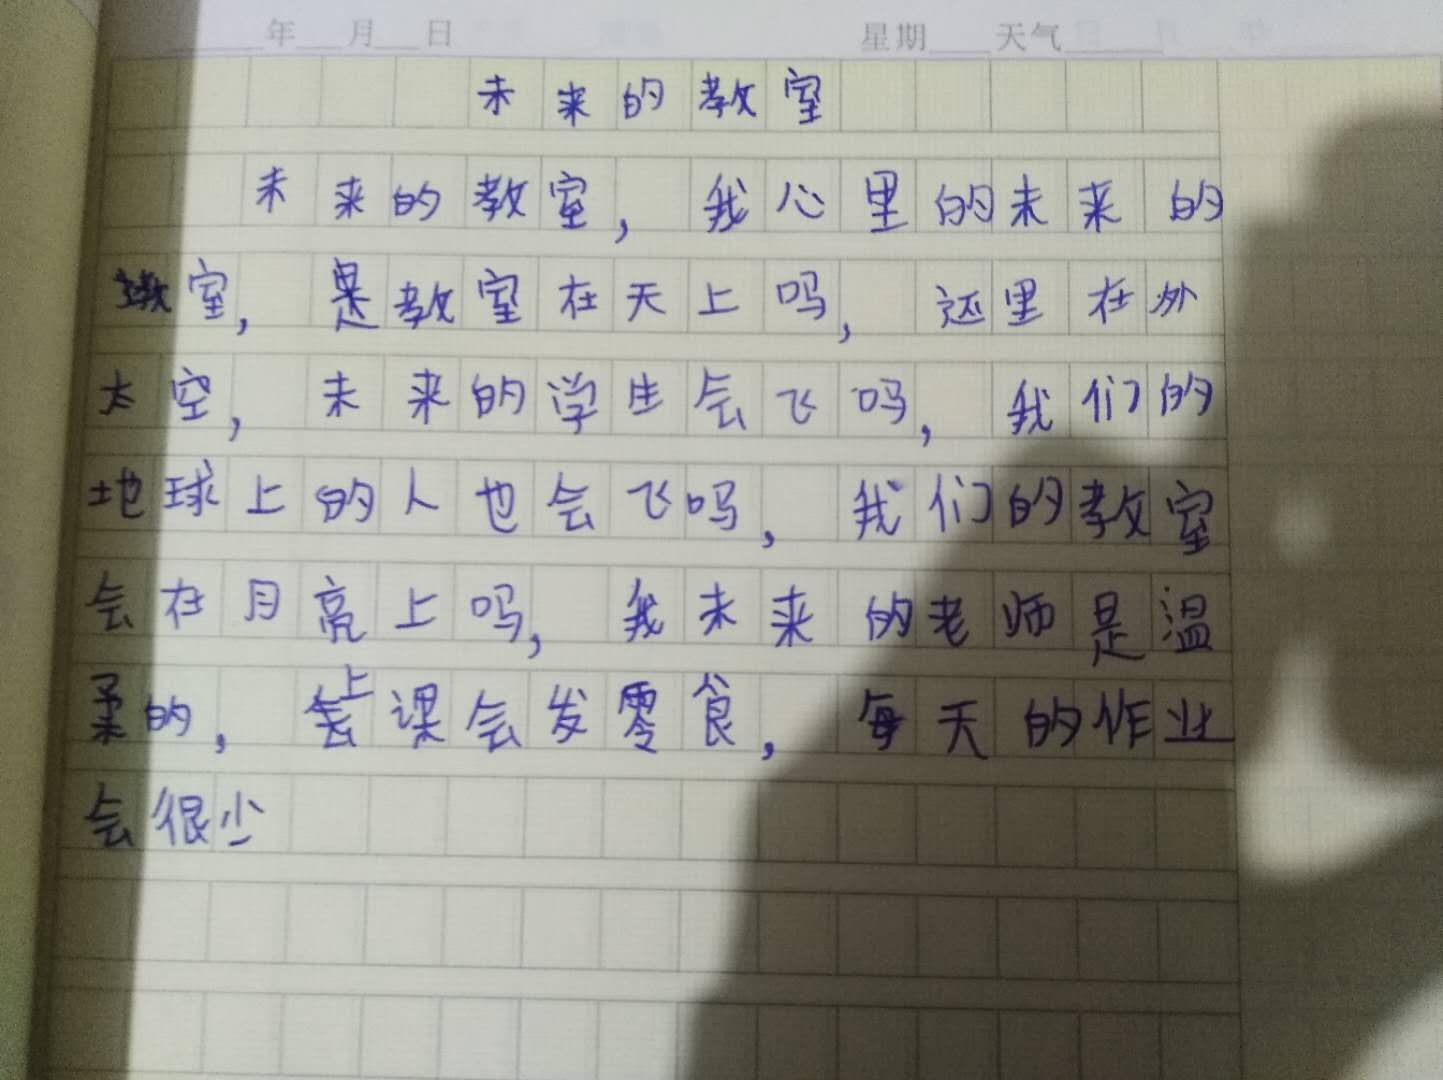 年 月 日 星期 天气
未来的教室
未来的教室，我心里的未来的
教室，是教室在天上吗，还里在外
太空，未来的学生会飞吗，我们的
地球上的人也会飞吗，我们的教室
会在月亮上吗，我未来的老师是温
柔的，上课会发零食，每天的作业
会很少